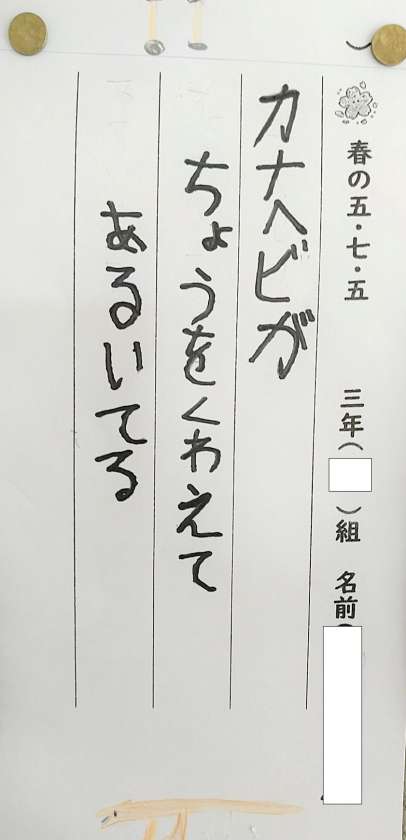 春の五・七・五 三年( )組 名前
カナヘビが
ちょうをくわえて
あるいてる